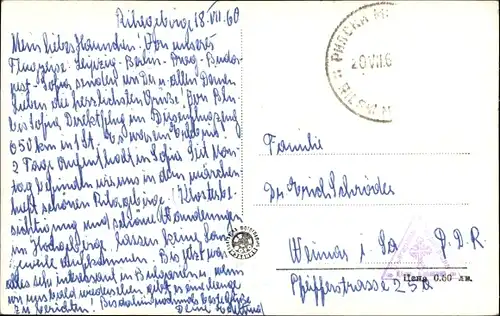 Rilagebirge 18.VII.60
Mein liebes Hannchen! Von unserer
Flugreise: Leipzig-Berlin-Prag-Buda-
pest-Sofia senden wir Dir u. allen Deinen
Lieben die herzlichsten Grüsse! Von Bln.
bis Sofia Direktflug im Düsenflugzeug
650 km in 1 St. Es war ein Erlebnis!
2 Tage Aufenthalt in Sofia. Seit Mon-
tag befinden wir uns in dem märchen-
haft schönen Rilagebirge! (Klosterbe-
sichtigung und schöne Wanderungen
im Hochgebirge, lassen keine Lan-
geweile aufkommen. Bis jetzt war
alles sehr interessant in Bulgarien, wenn
wir uns bald wiedersehen gibt es eine Menge
zu berichten! Bis dahin nochmals herzl. Grüße
Deine
РИЛСКА
20.VII.6
Familie
Dr. Erich Schröder
Weimar i. Th. D.D.R.
Pfeifferstrasse 25a
Цена 0.60 лв.